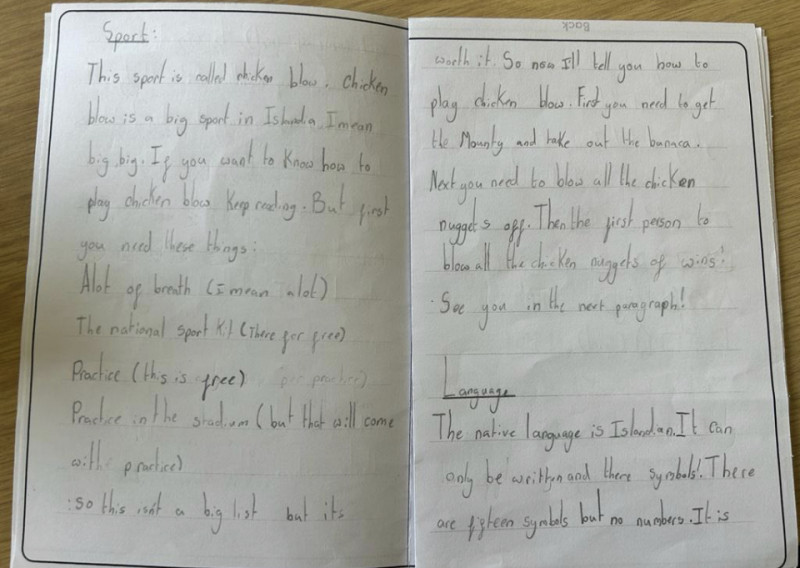 Sport:
This sport is called chicken blow. Chicken
blow is a big sport in Islandia I mean
big, big. If you want to Know how to
play chicken blow Keep reading. But first
you need these things:
Alot of breath (I mean alot)
The national sport Kit (There for free)
Practice (this is free)
Practice in the stadium (but that will come
with practice)
:so this isn't a big list but its
Back
worth it. So now I'll tell you how to
play chicken blow. First you need to get
the Mounty and take out the
Next you need to blow all the chicken
nuggets off. Then the first person to
blow all the chicken nuggets of wins!
See you in the next paragraph!
Language
The native language is Islandian. It can
only be written and there symbols!. There
are fifteen symbols but no numbers. It is